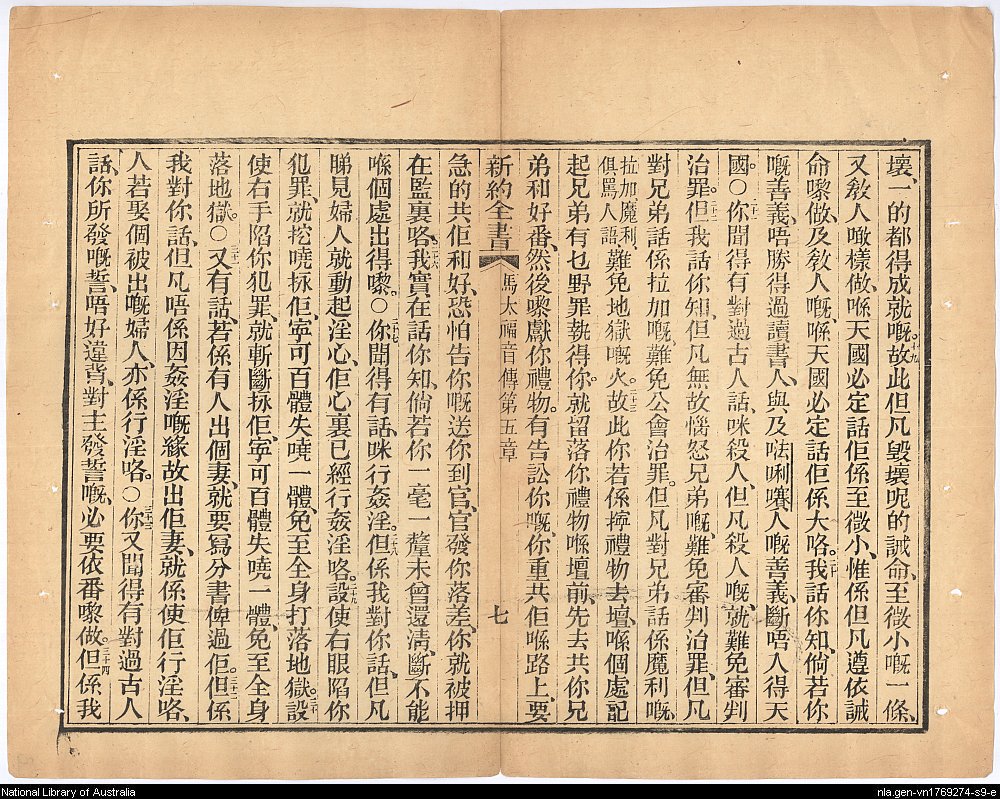 壞、一的都得成就嘅。十九故此但凡毀壞呢的誡命、至微小嘅一條、
又敎人噉樣做、喺天國必定話佢係至微小、惟係但凡遵依誡
命嚟做、及敎人嘅、喺天國必定話佢係大咯。二十我話你知、倘若你
嘅善義、唔勝得過讀書人、與及㗳唎㘔人嘅善義、斷唔入得天
國。○二十一你聞得有對過古人話、咪殺人、但凡殺人嘅、就難免審判
治罪。二十二但我話你知、但凡無故惱怒兄弟嘅、難免審判治罪、但凡
對兄弟話係拉加嘅、難免公會治罪。但凡對兄弟話係魔利嘅、
拉加魔利、俱罵人語、難免地獄嘅火。二十三故此你若係擰禮物去壇、喺個處記
起兄弟有乜野罪執得你。二十四就留落你禮物喺壇前、先去共你兄
弟和好番、然後嚟獻你禮物。二十五有告訟你嘅、你重共佢喺路上、要
新約全書 馬太福音傳第五章 七
急的共佢和好、恐怕告你嘅送你到官、官發你落差、你就被押
在監裏咯。二十六我實在話你知、倘若你一毫一釐未曾還清、斷不能
喺個處出得嚟。○二十七你聞得有話、咪行姦淫。二十八但係我對你話、但凡
睇見婦人就動起淫心、佢心裏已經行姦淫咯。二十九設使右眼陷你
犯罪、就挖嘵捄佢、寧可百體失嘵一體、免至全身打落地獄。三十設
使右手陷你犯罪、就斬斷捄佢、寧可百體失嘵一體、免至全身
落地獄。○三十一又有話、若係有人出個妻、就要寫分書俾過佢。三十二但係
我對你話、但凡唔係因姦淫嘅緣故出佢妻、就係使佢行淫咯、
人若娶個被出嘅婦人、亦係行淫咯。○三十三你又聞得有對過古人
話、你所發嘅誓、唔好違背、對主發誓嘅、必要依番嚟做。三十四但係我
National Library of Australia
nla.gen-vn1769274-s9-e